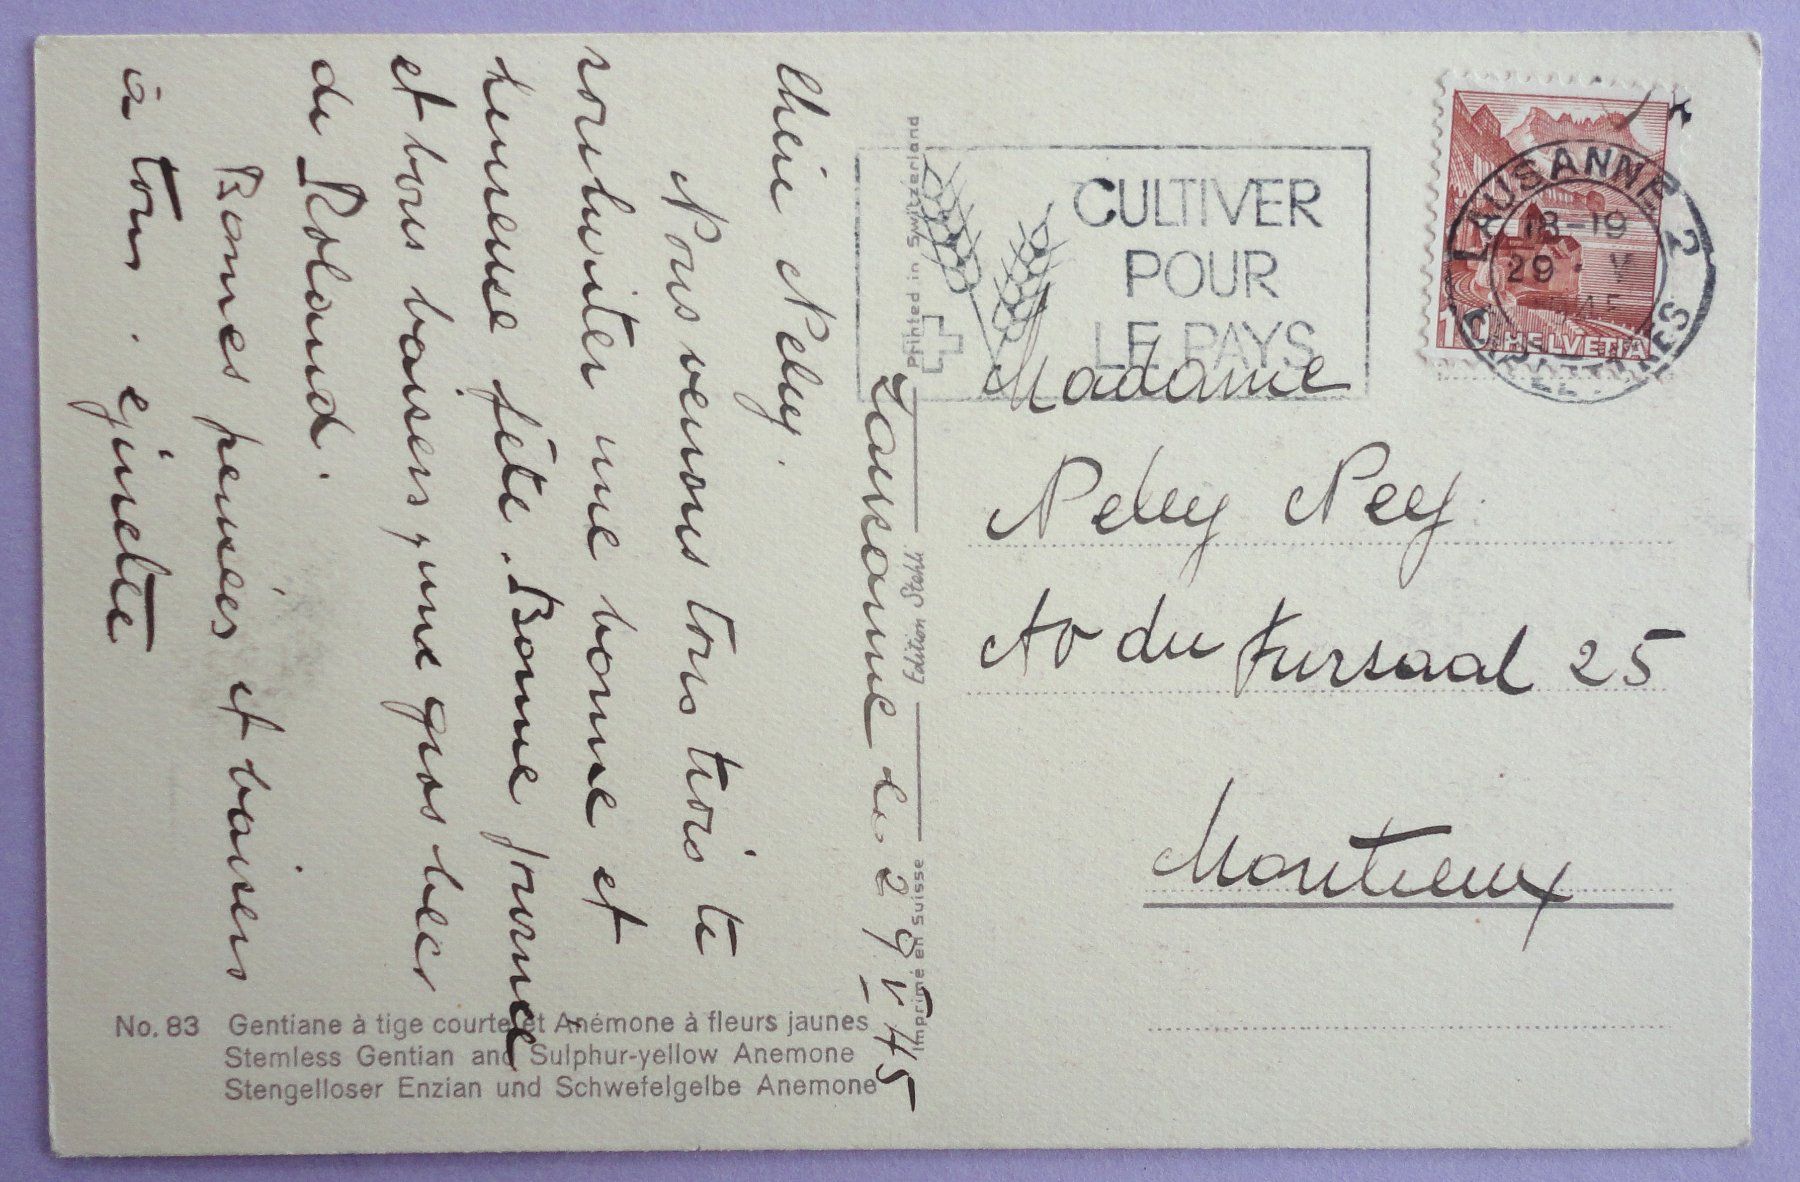 Lausanne le 29 V 45
Chère Nelly.
Nous venons tous trois te
souhaiter une bonne et
heureuse fête. Bonne journée
et bons baisers, une gros bec
de Roland.
Bonnes pensées et baisers
à tous. Ginette
No. 83 Gentiane à tige courte et Anémone à fleurs jaunes
Stemless Gentian and Sulphur-yellow Anemone
Stengelloser Enzian und Schwefelgelbe Anemone
Imprimé en Suisse
Edition Stehli
Printed in Switzerland
CULTIVER
POUR
LE PAYS
LAUSANNE 2
18-19
29 V
10 HELVETIA
Madame
Nelly Ney
Av du Kursaal 25
Montreux